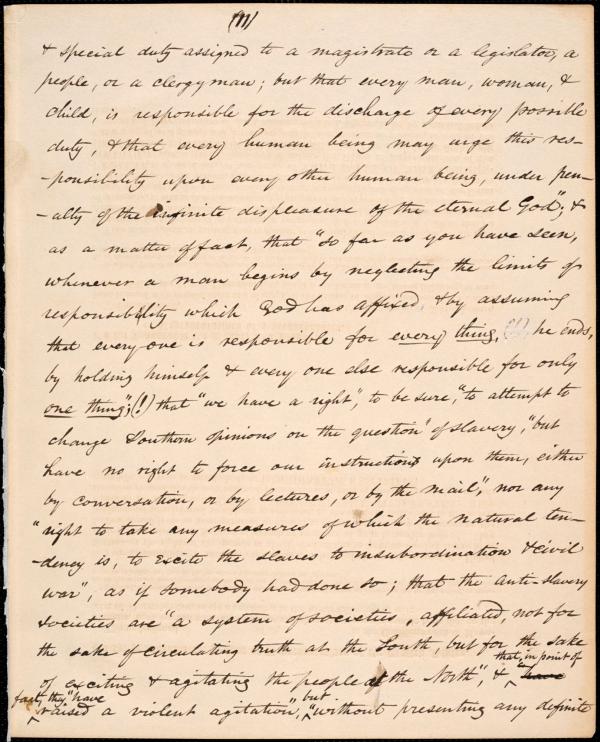 (11)
& special duty assigned to a magistrate or a legislator, a
people, or a clergyman; but that every man, woman, &
child, is responsible for the discharge of every possible
duty, & that every human being may urge this res-
-ponsibility upon every other human being, under pen-
-alty of the infinite displeasure of the eternal God"; &
as a matter of fact, that "so far as you have seen,
whenever a man begins by neglecting the limits of
responsibility which God has affixed, & by assuming
that every one is responsible for every thing, (!), he ends,
by holding himself & every one else responsible for only
one thing"; (!) that "we have a right", to be sure, "to attempt to
change Southern opinions on the question" of slavery, "but
have no right to force our instructions upon them, either
by conversation, or by lectures, or by the mail", nor any
"right to take any measures of which the natural ten-
-dency is, to excite the slaves to insubordination & civil
war", as if somebody had done so; that the anti-slavery
societies are "a system of societies, affiliated, not for
the sake of circulating truth at the South, but for the sake
of exciting & agitating the people at the North", & that, in point of
fact, they "have raised a violent agitation", but "without presenting any definite